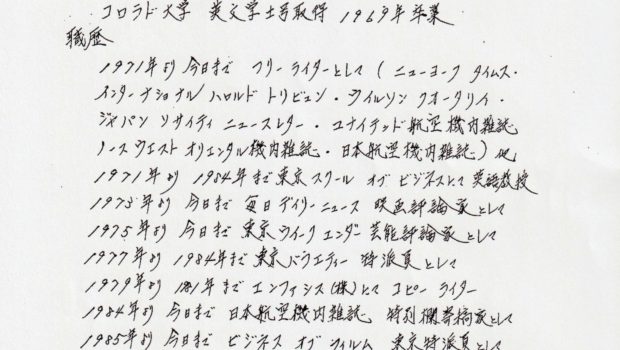 コロラド大学 英文学士号取得 1969年卒業
職歴
1971年より今日まで フリーライターとして(ニューヨーク タイムス・
インターナショナル/ハロルド トリビュン・ウイルソン クオータリイ・
ジャパン ソサイティ ニュースレター・ユナイテッド航空機内雑誌
ノースウエスト オリエンタル機内雑誌・日本航空機内雑誌)他
1971年より 1984年まで東京スクール オブ ビジネスにて英語教授
1973年より 今日まで 毎日デイリーニュース 映画評論家として
1975年より 今日まで 東京ウイークエンダー 芸能評論家として
1977年より 1984年まで東京バラエティー 特派員として
1979年より 1981年まで エンファシス(株)にて コピーライター
1984年より 今日まで 日本航空機内雑誌 特別欄寄稿家として
1985年より 今日まで ビジネス オブ フィルム 東京特派員として